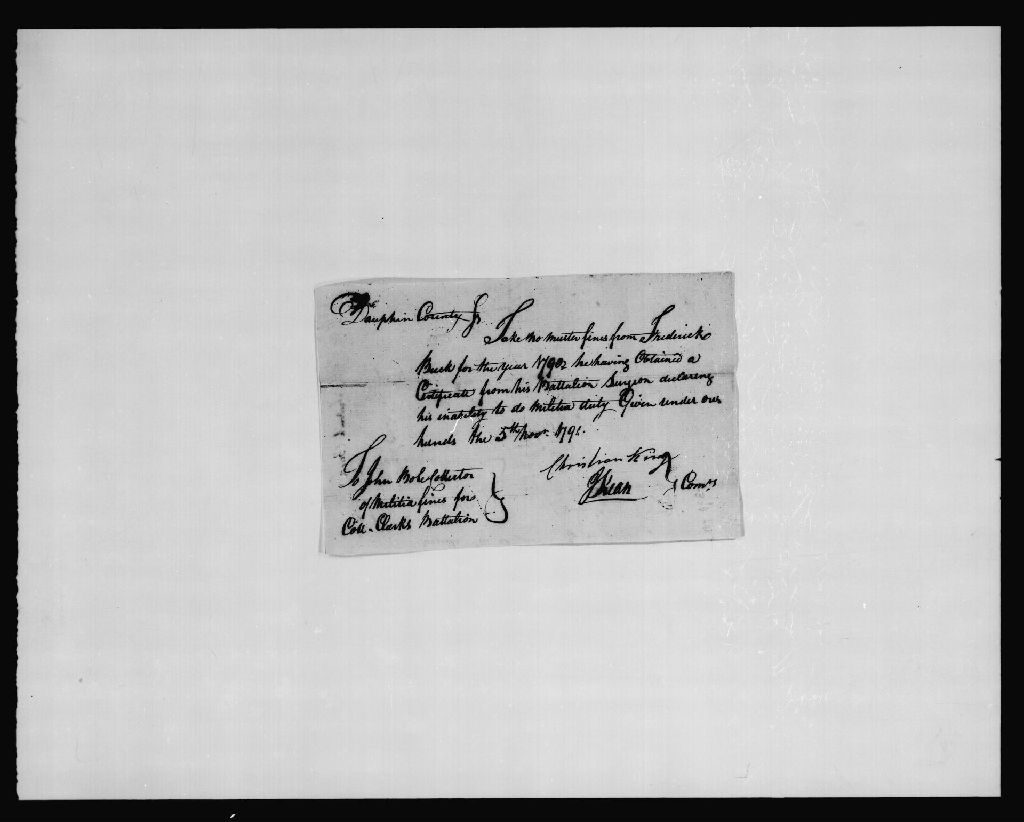 Dauphin County Js
Take no muster fines from Frederick
Buck for the year 1790 he having Obtained a
Certificate from his Battalion Surgeon declareing
his inability to do Militia duty Given under our
hands the 5th Novr. 1791.
Christian King
JKean } Comrs
To John Bole Collector
of Militia fines for
Coll. Clarks Battalion